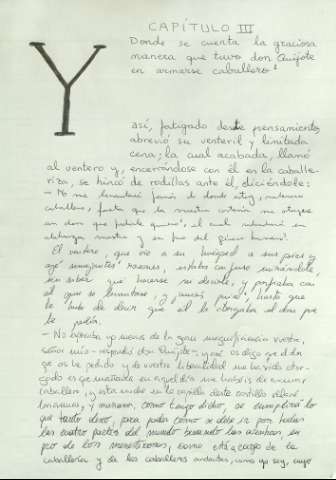 CAPÍTULO III
Donde se cuenta la graciosa
manera que tuvo don Quijote
en armarse caballero
Y
así, fatigado deste pensamiento,
abrevió su venteril y limitada
cena; la cual acabada, llamó
al ventero y, encerrándose con él en la caballe-
riza, se hincó de rodillas ante él, diciéndole:
- No me levantaré jamás de donde estoy, valeroso
caballero, fasta que la vuestra cortesía me otorgue
un don que pedirle quiero, el cual redundará en
alabanza vuestra y en pro del género humano.
El ventero, que vio a su huésped a sus pies y
oyó semejantes razones, estaba confuso mirándole,
sin saber qué hacerse ni decirle, y porfiaba con
él que se levantase, y jamás quiso, hasta que
le hubo de decir que él le otorgaba el don que
le pedía.
- No esperaba yo menos de la gran magnificencia vuestra,
señor mío - respondió don Quijote -, y así os digo que el don
que os he pedido y de vuestra liberalidad me ha sido otor-
gado es que mañana en aquel día me habéis de armar
caballero, y esta noche en la capilla deste vuestro castillo
y mañana, como tengo dicho, se cumplirá lo
que tanto deseo, para poder como se debe ir por todas
las cuatro partes del mundo buscando las aventuras, en
pro de los menesterosos, como está a cargo de la
caballería y de los caballeros andantes, como yo soy, cuyo